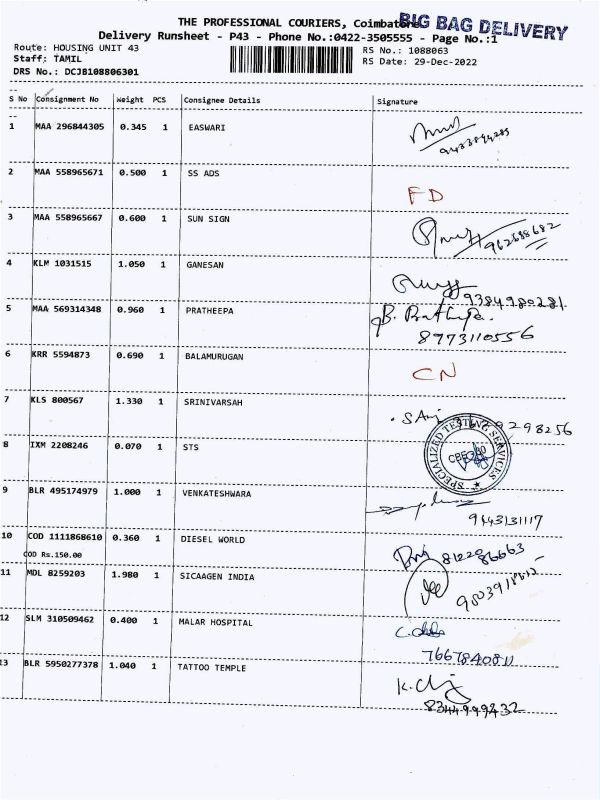 THE PROFESSIONAL COURIERS, Coimbatore
BIG BAG DELIVERY
Delivery Runsheet - P43 - Phone No.:0422-3505555 - Page No.:1
Route: HOUSING UNIT 43
RS No.: 1088063
Staff: TAMIL
RS Date: 29-Dec-2022
DRS No.: DCJB108806301
S No Consignment No Weight PCS Consignee Details Signature
1 MAA 296844305 0.345 1 EASWARI
2 MAA 558965671 0.500 1 SS ADS
FD
3 MAA 558965667 0.600 1 SUN SIGN
962688682
4 KLM 1031515 1.050 1 GANESAN
9384980281
5 MAA 569314348 0.960 1 PRATHEEPA
B. Prathipa.
8973110556
6 KRR 5594873 0.690 1 BALAMURUGAN
CN
7 KLS 800567 1.330 1 SRINIVARSAH
8 IXM 2208246 0.070 1 STS
SPECIALIZED TESTING SERVICES
9 BLR 495174979 1.000 1 VENKATESHWARA
9443131117
10 COD 1111868610 0.360 1 DIESEL WORLD
COD Rs.150.00
8122986663
11 MDL 8259203 1.980 1 SICAAGEN INDIA
12 SLM 310509462 0.400 1 MALAR HOSPITAL
7667840811
13 BLR 5950277378 1.040 1 TATTOO TEMPLE
8344999432